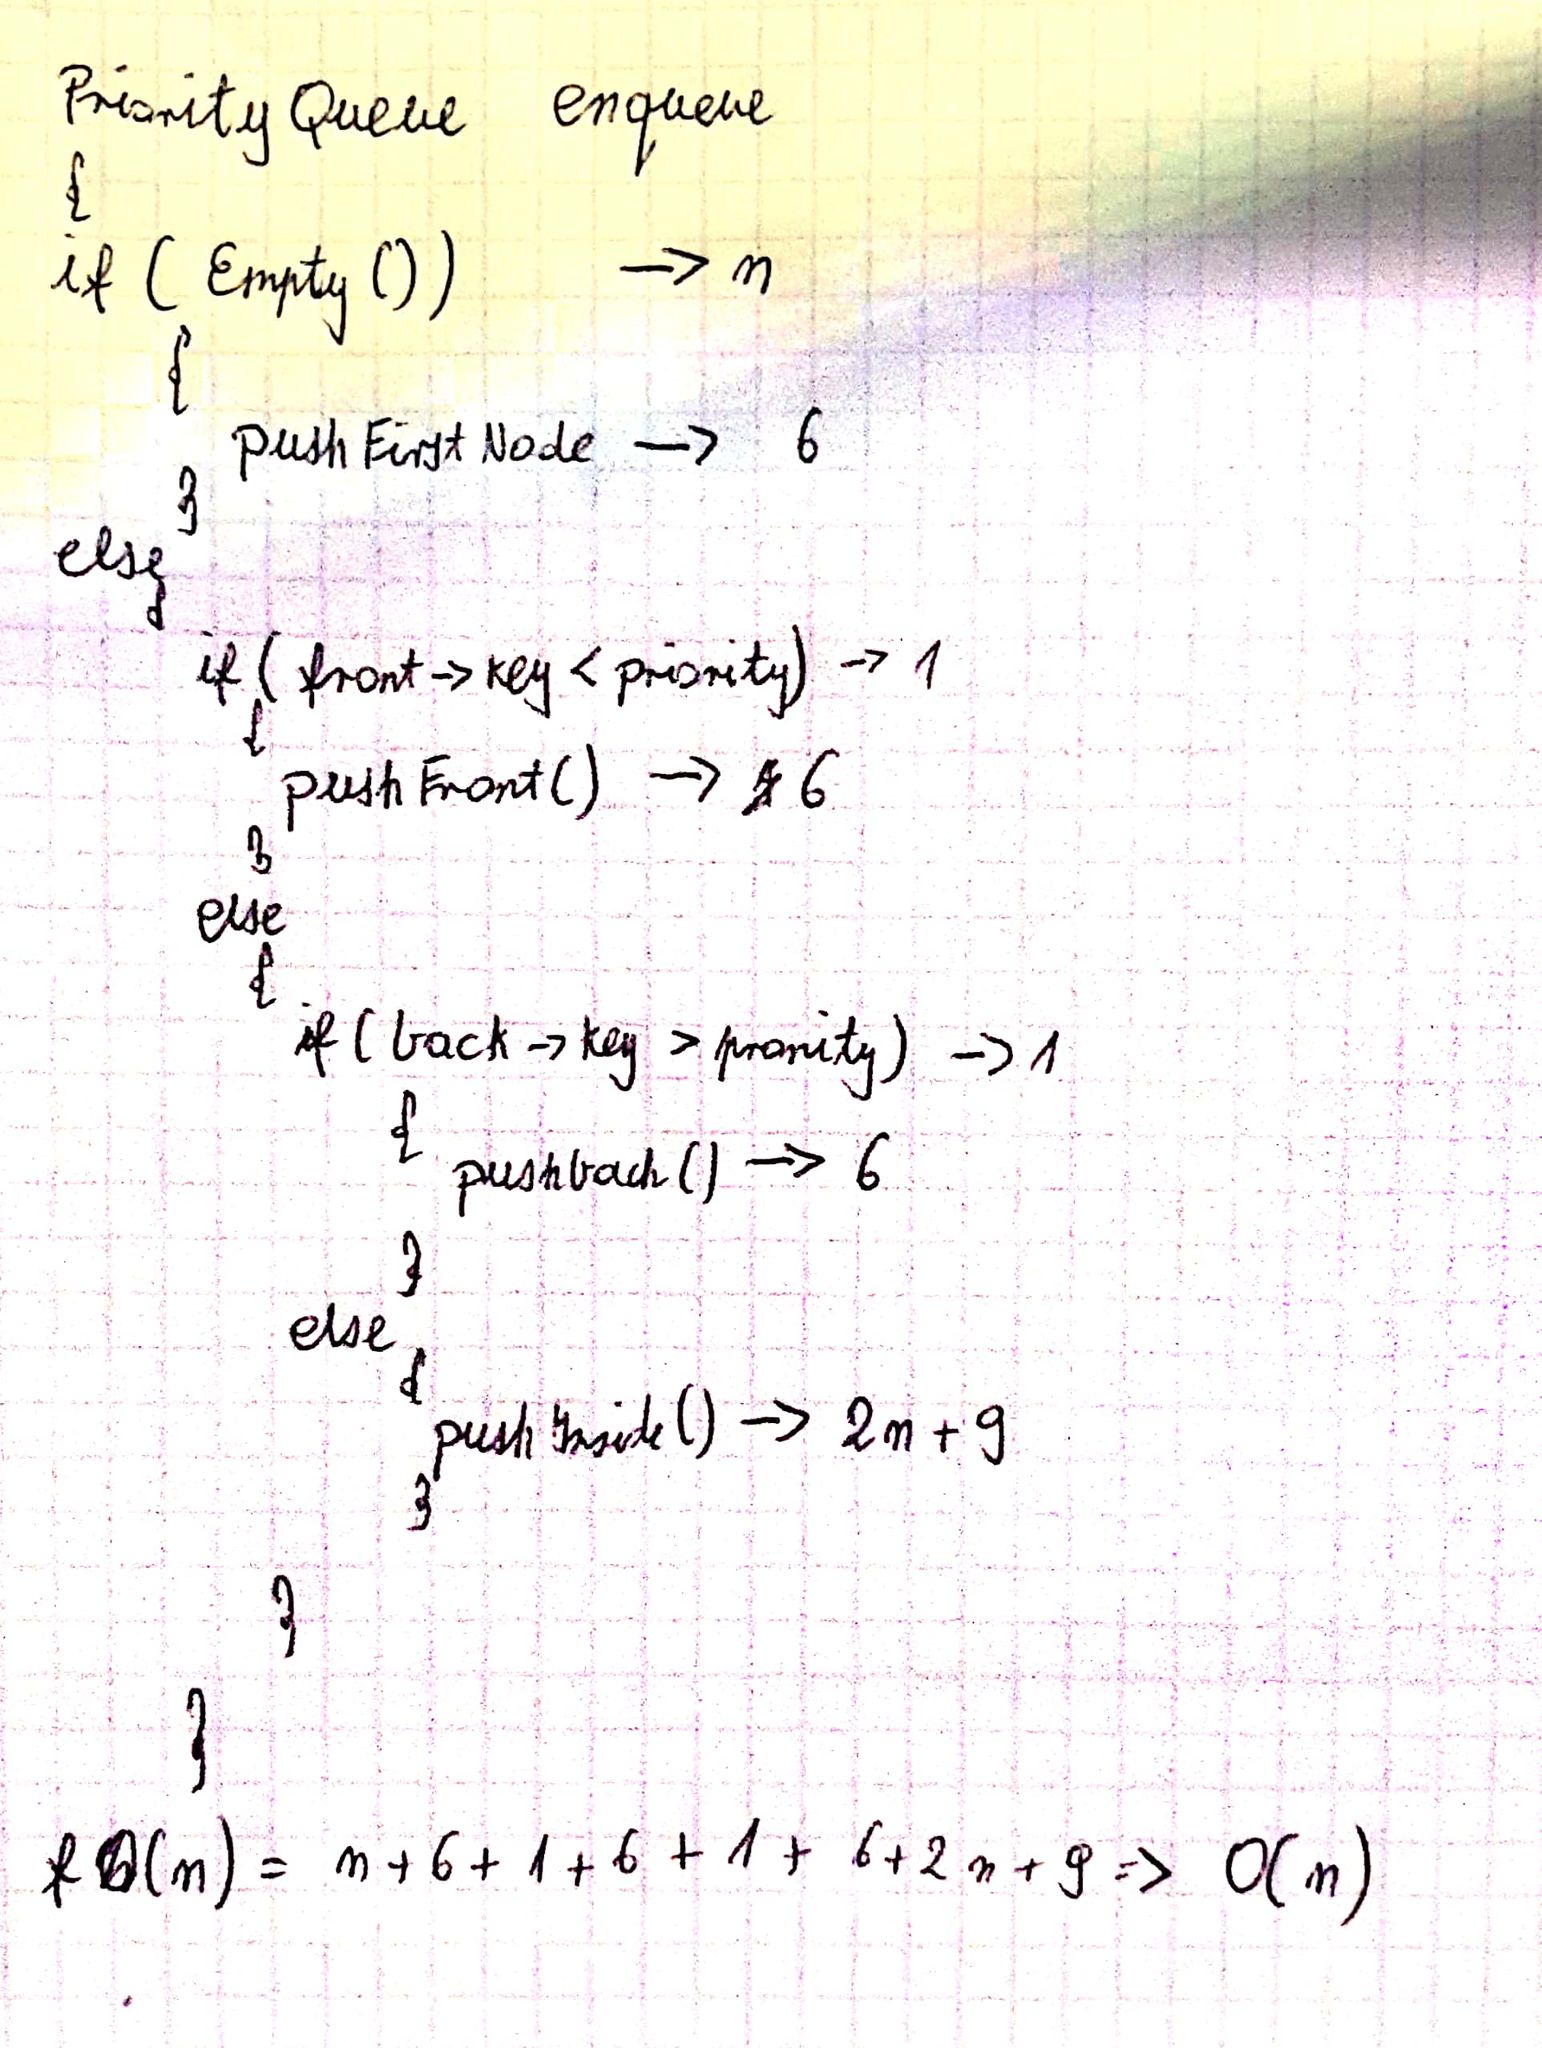 Priority Queue enqueue
{
if ( Empty ()) -> n
{
pushFirstNode -> 6
}
else
{
if ( front -> key < priority) -> 1
{
pushFront() -> 6
}
else
{
if ( back -> key > priority) -> 1
{
pushback() -> 6
}
else
{
pushInside() -> 2n + 9
}
}
}
f(n) = n + 6 + 1 + 6 + 1 + 6 + 2n + 9 => O(n)